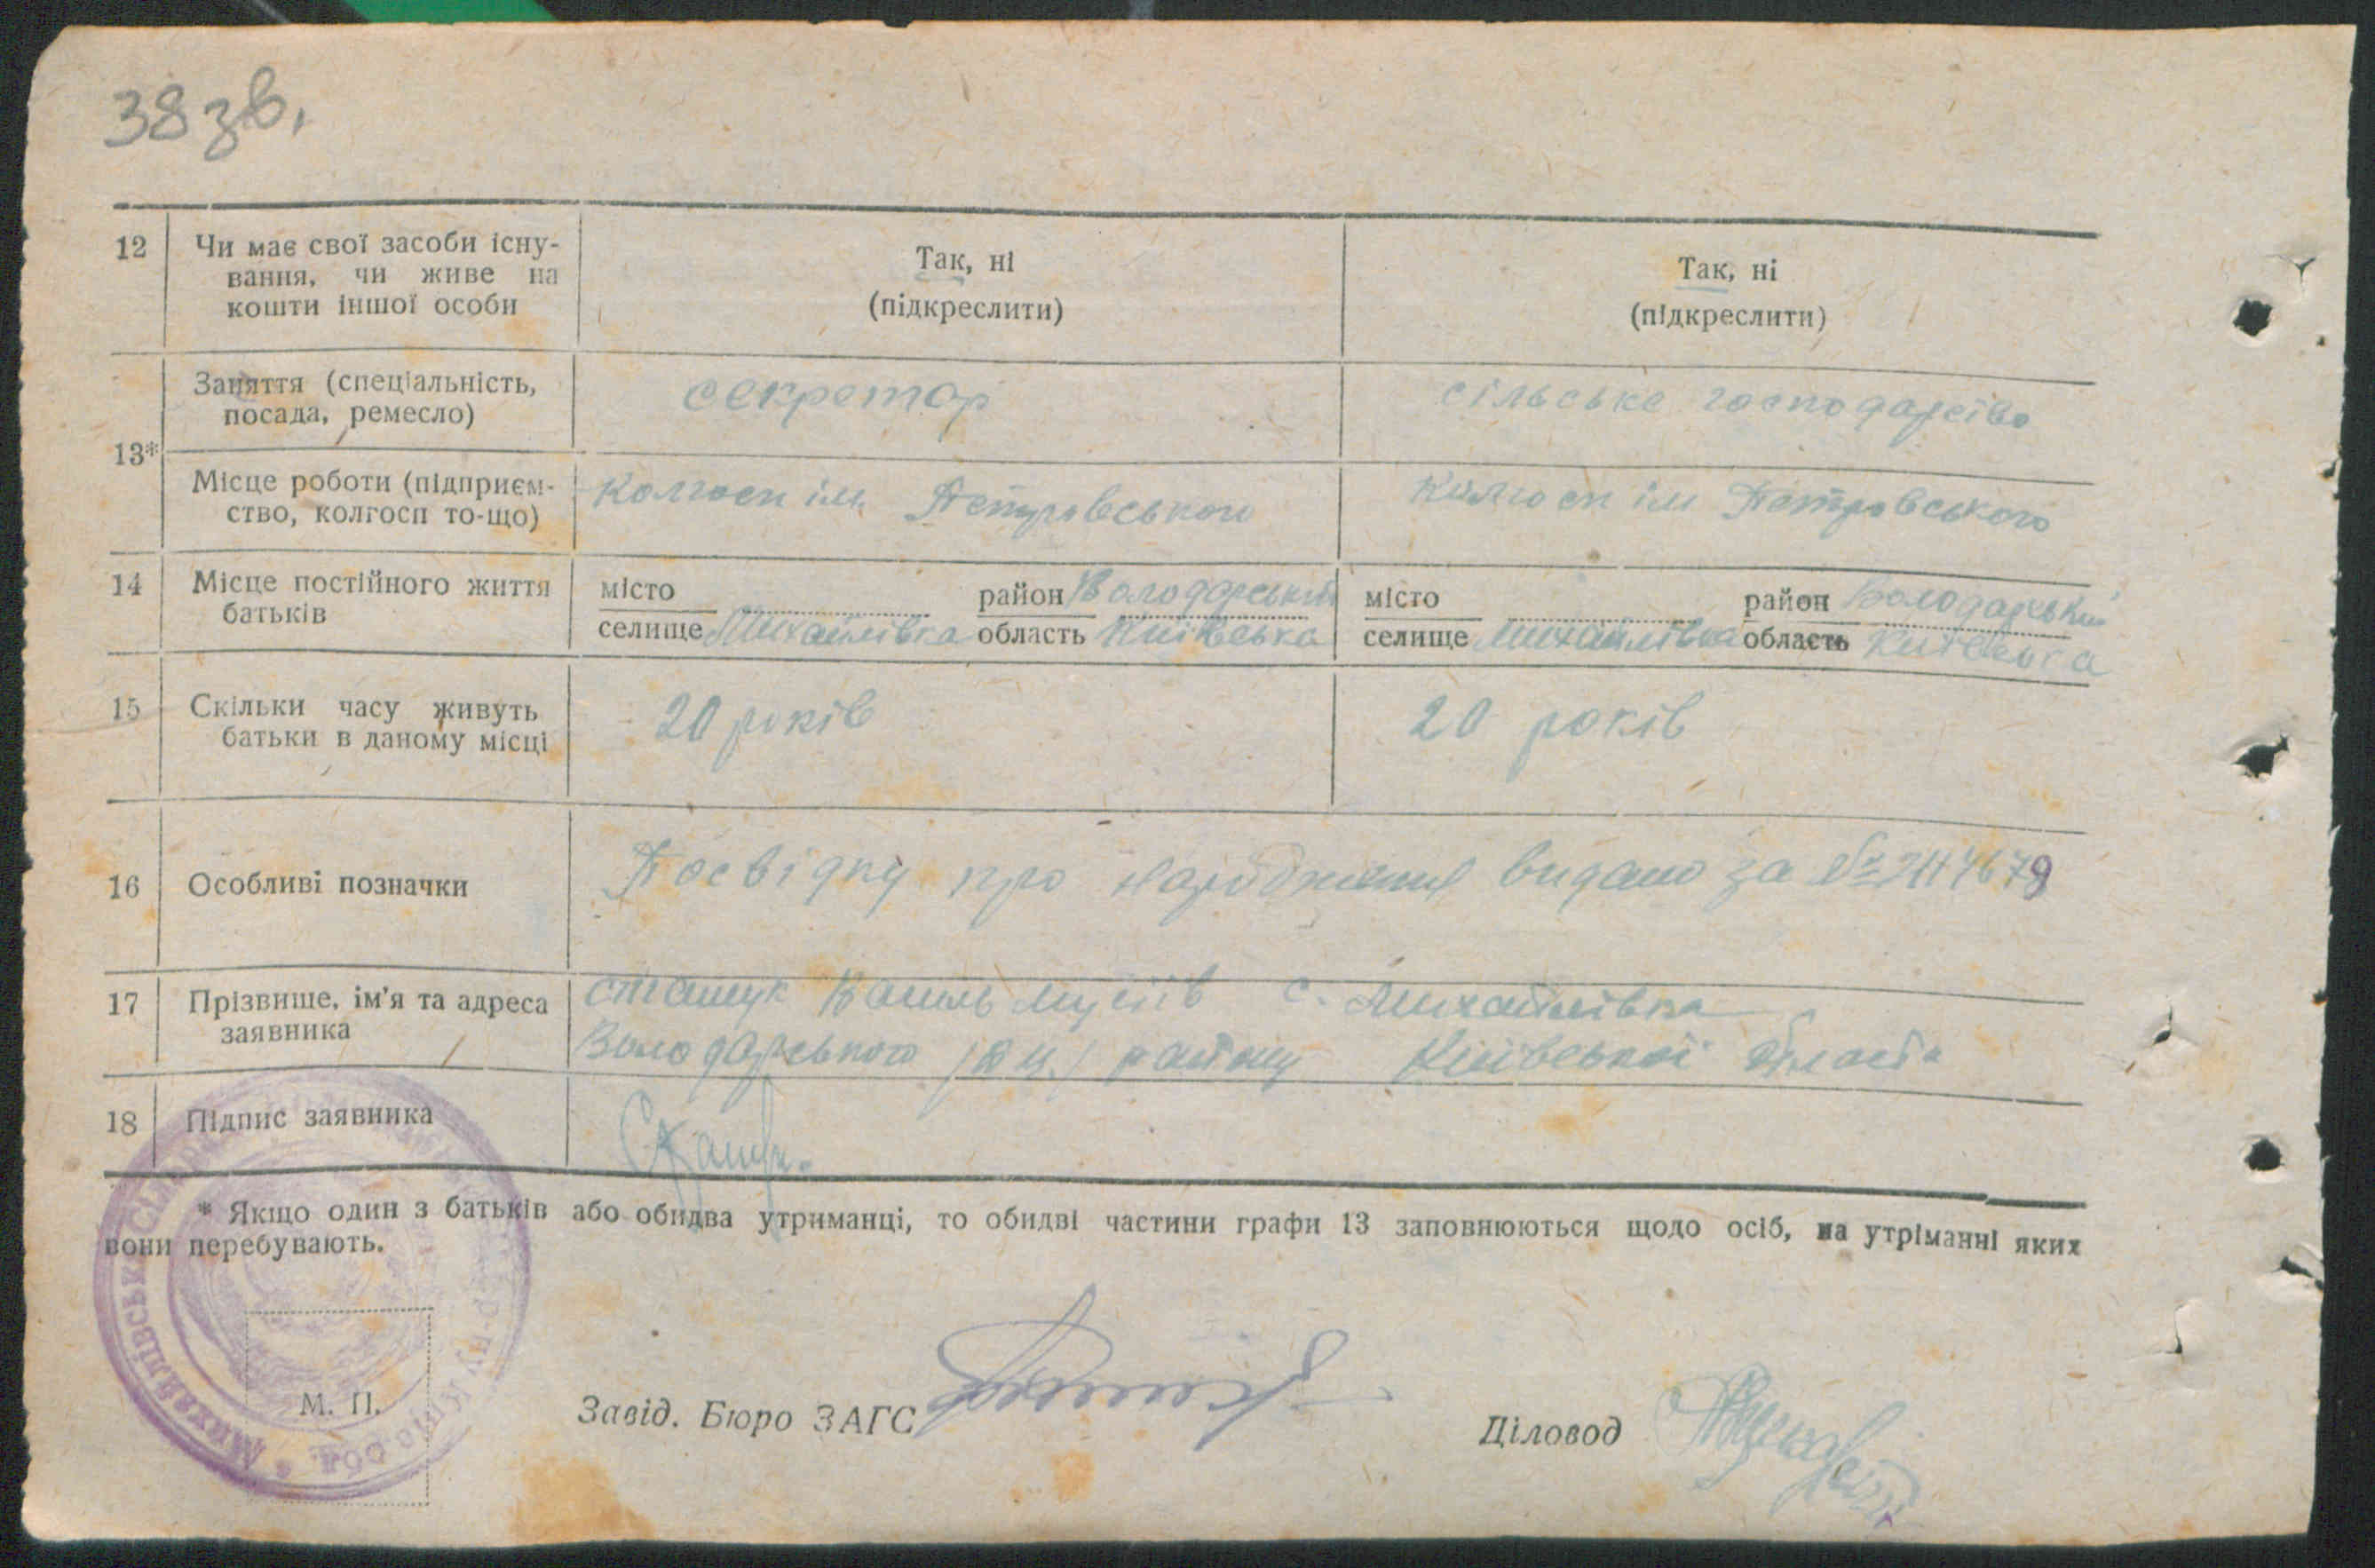 38 зв.
12 Чи має свої засоби існу- Так, ні Так, ні
вання, чи живе на (підкреслити) (підкреслити)
кошти іншої особи
13* Заняття (спеціальність, секретар сільське господарство
посада, ремесло)
Місце роботи (підприєм- колгосп ім. Петровського колгосп ім Петровського
ство, колгосп то-що)
14 Місце постійного життя місто район Володарський місто район Володарський
батьків селище Михайлівка область Київська селище Михайлівка область Київська
15 Скільки часу живуть 20 років 20 років
батьки в даному місці
16 Особливі позначки Посвідку про народження видано за №
17 Прізвище, ім'я та адреса Сташук с. Михайлівка
заявника Володарського району Київської області
18 Підпис заявника
* Якщо один з батьків або обидва утриманці, то обидві частини графи 13 заповнюються щодо осіб, на утріманні яких
вони перебувають.
М. П.
Завід. Бюро ЗАГС Діловод